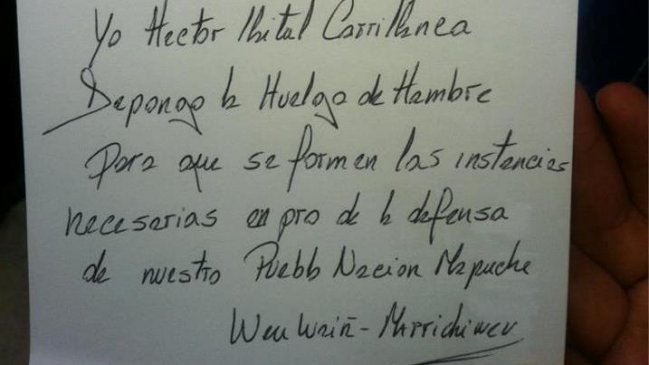 Yo Hector Llaitul Carrillanca
Depongo la Huelga de Hambre
para que se formen las instancias
necesarias en pro de la defensa
de nuestro Pueblo Nacion Mapuche
Weuwaiñ - Marrichiweu